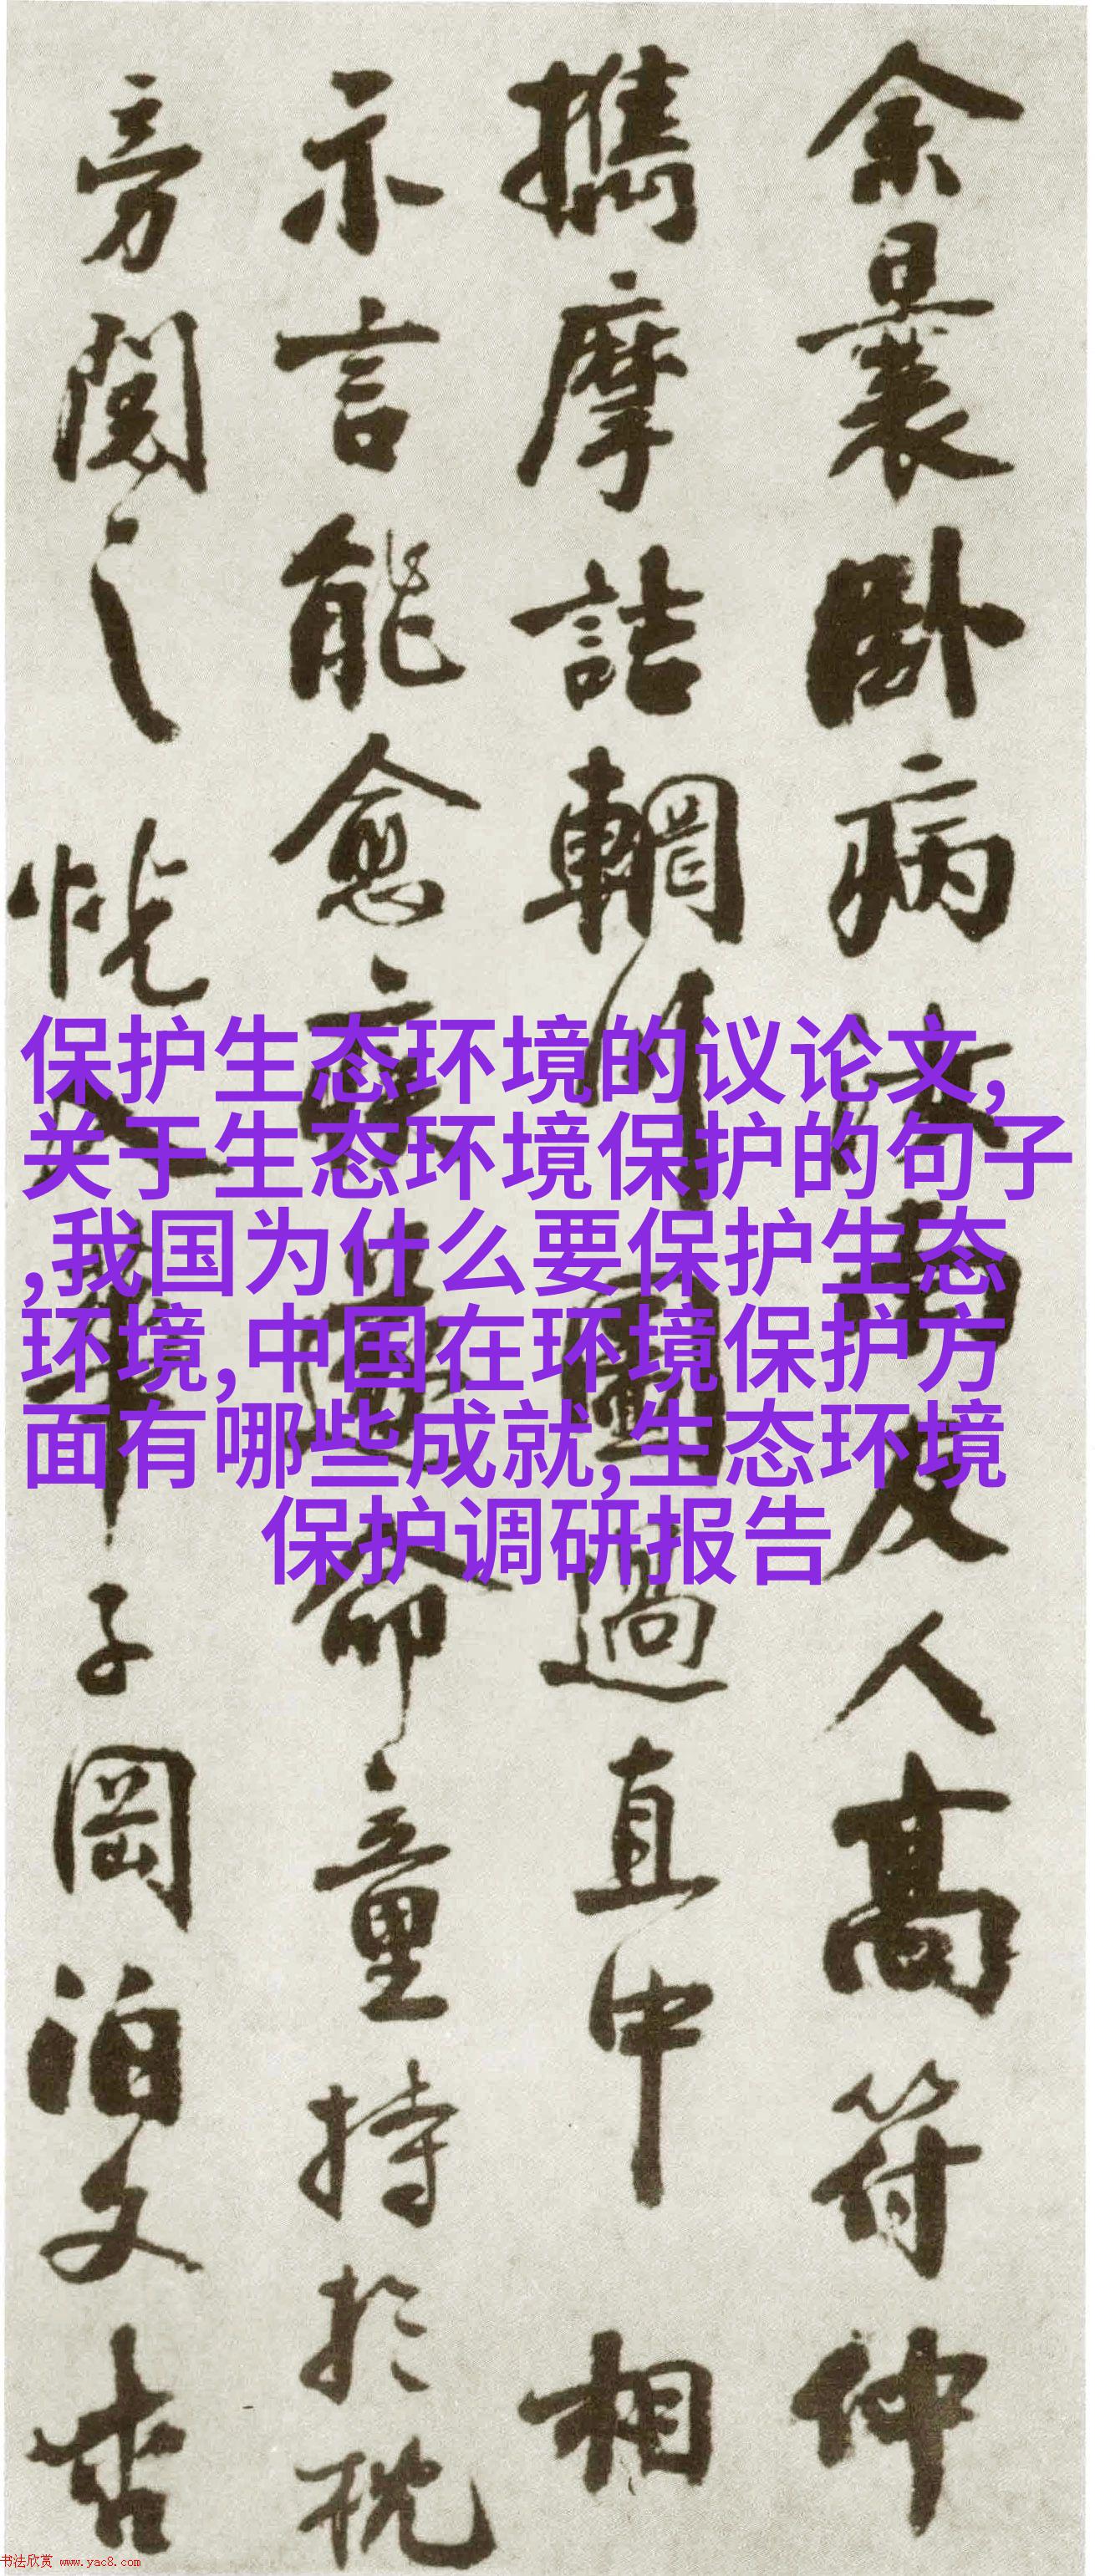 余曩臥病汝南友人高符仲
攜摩詰輞川圖過直中相
示言能愈疾遂命童持於枕
旁閱之恍入華子岡泊文杏
保护生态环境的议论文,
关于生态环境保护的句子
,我国为什么要保护生态
环境,中国在环境保护方
面有哪些成就,生态环境
保护调研报告
书法欣赏 www.yac8.com